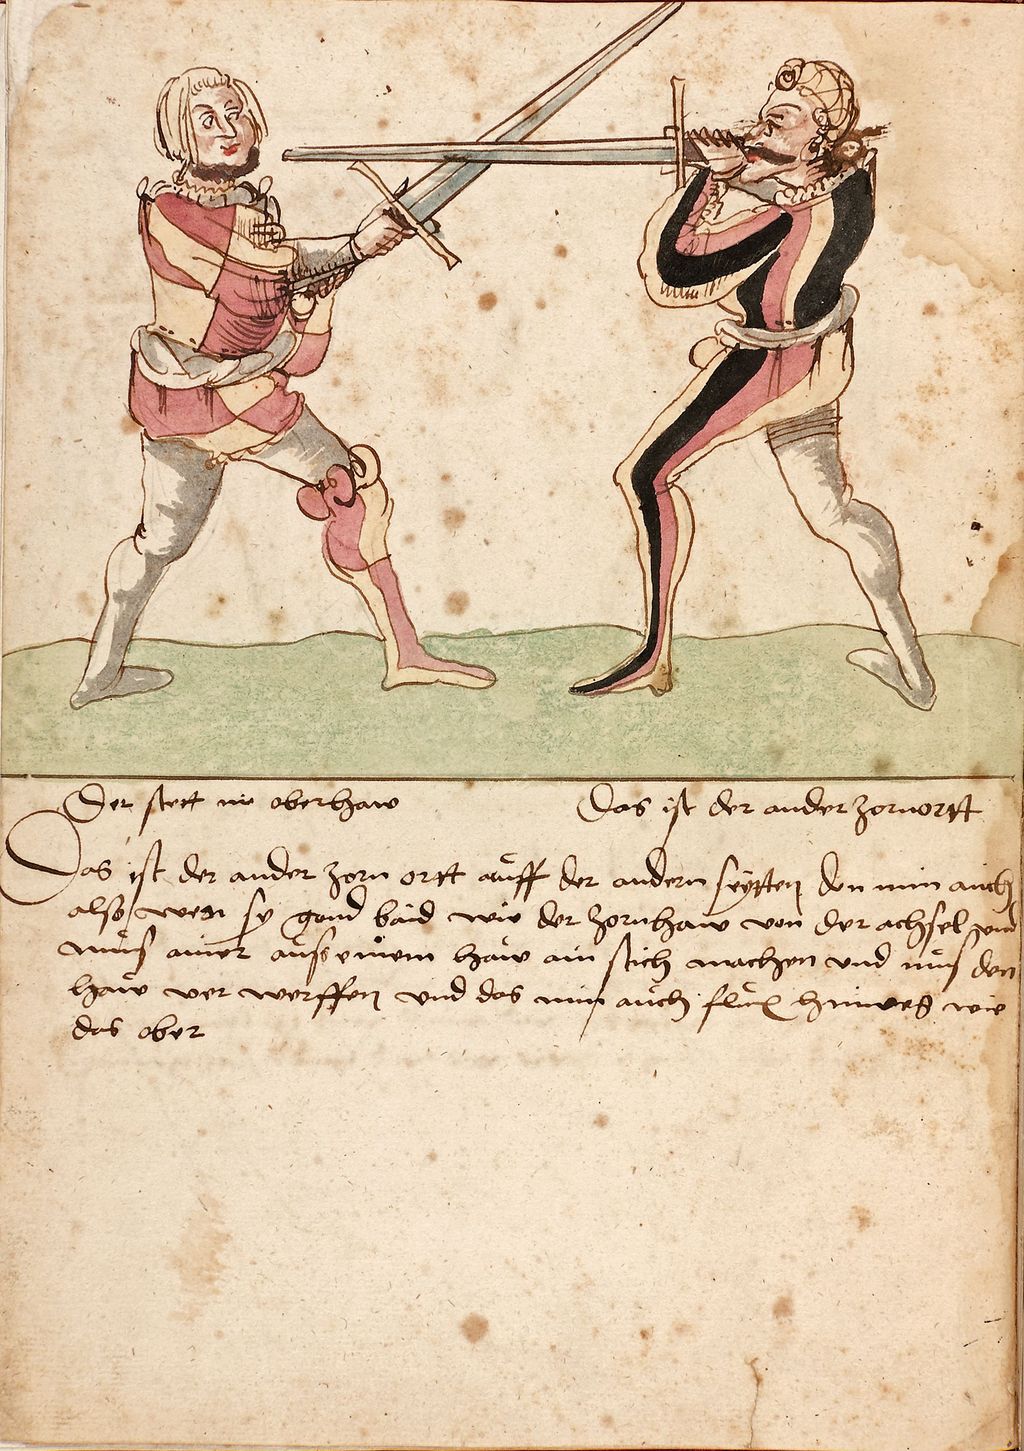 Der stett im oberhaw
Das ist der ander zornortt
Das ist der ander zorn ortt auff der andern seytten den nim auch
also wen sy gond baid wie der zornhaw von der achsel und
muss ainer auss einem haw ain stich machen und muss den
haw ver werffen und das nim auch flux hinweg wie
das ober